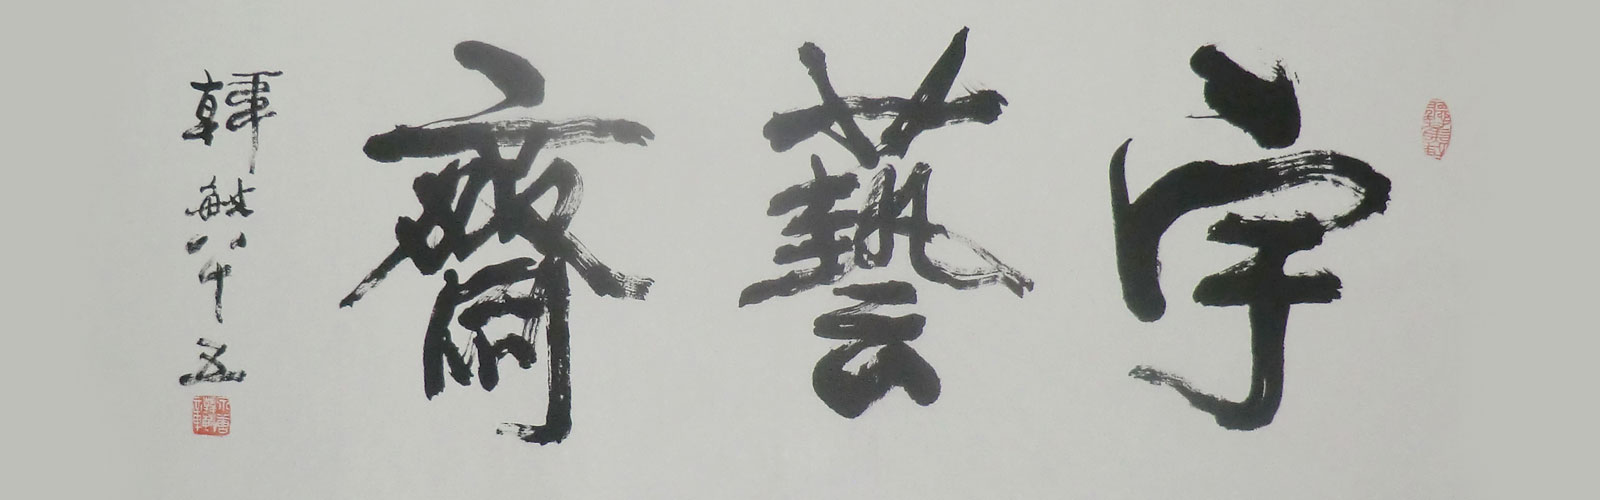 宇藝齋
韓敏八十五